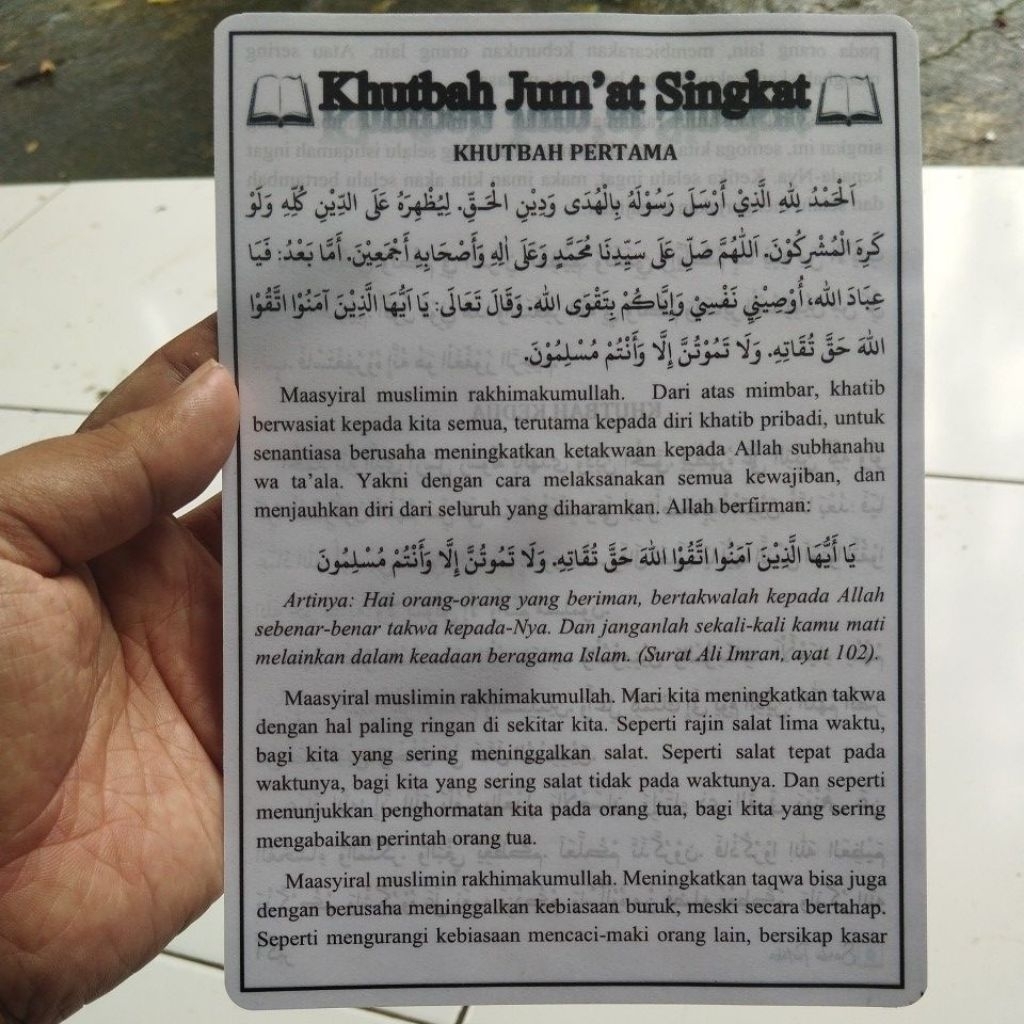 Khutbah Jum'at Singkat
KHUTBAH PERTAMA
اَلْحَمْدُ لِلهِ الَّذِيْ أَرْسَلَ رَسُوْلَهُ بِالْهُدَى وَدِيْنِ الْحَقِّ. لِيُظْهِرَهُ عَلَى الدِّيْنِ كُلِّهِ وَلَوْ
كَرِهَ الْمُشْرِكُوْنَ. اَللّٰهُمَّ صَلِّ عَلَى سَيِّدِنَا مُحَمَّدٍ وَعَلَى اٰلِهِ وَأَصْحَابِهِ أَجْمَعِيْنَ. أَمَّا بَعْدُ: فَيَا
عِبَادَ الله، أُوْصِيْنِي نَفْسِيْ وَإِيَّاكُمْ بِتَقْوَى الله. وَقَالَ تَعَالَى: يَا اَيُّهَا الَّذِيْنَ آمَنُوْا اتَّقُوْا
اللهَ حَقَّ تُقَاتِهِ. وَلَا تَمُوْتُنَّ إِلَّا وَأَنْتُمْ مُسْلِمُوْنَ.
Maasyiral muslimin rakhimakumullah. Dari atas mimbar, khatib
berwasiat kepada kita semua, terutama kepada diri khatib pribadi, untuk
senantiasa berusaha meningkatkan ketakwaan kepada Allah subhanahu
wa ta'ala. Yakni dengan cara melaksanakan semua kewajiban, dan
menjauhkan diri dari seluruh yang diharamkan. Allah berfirman:
يَا أَيُّهَا الَّذِيْنَ آمَنُوا اتَّقُوْا اللهَ حَقَّ تُقَاتِهِ. وَلَا تَمُوْتُنَّ إِلَّا وَأَنْتُمْ مُسْلِمُوْنَ
Artinya: Hai orang-orang yang beriman, bertakwalah kepada Allah
sebenar-benar takwa kepada-Nya. Dan janganlah sekali-kali kamu mati
melainkan dalam keadaan beragama Islam. (Surat Ali Imran, ayat 102).
Maasyiral muslimin rakhimakumullah. Mari kita meningkatkan takwa
dengan hal paling ringan di sekitar kita. Seperti rajin salat lima waktu,
bagi kita yang sering meninggalkan salat. Seperti salat tepat pada
waktunya, bagi kita yang sering salat tidak pada waktunya. Dan seperti
menunjukkan penghormatan kita pada orang tua, bagi kita yang sering
mengabaikan perintah orang tua.
Maasyiral muslimin rakhimakumullah. Meningkatkan taqwa bisa juga
dengan berusaha meninggalkan kebiasaan buruk, meski secara bertahap.
Seperti mengurangi kebiasaan mencaci-maki orang lain, bersikap kasar